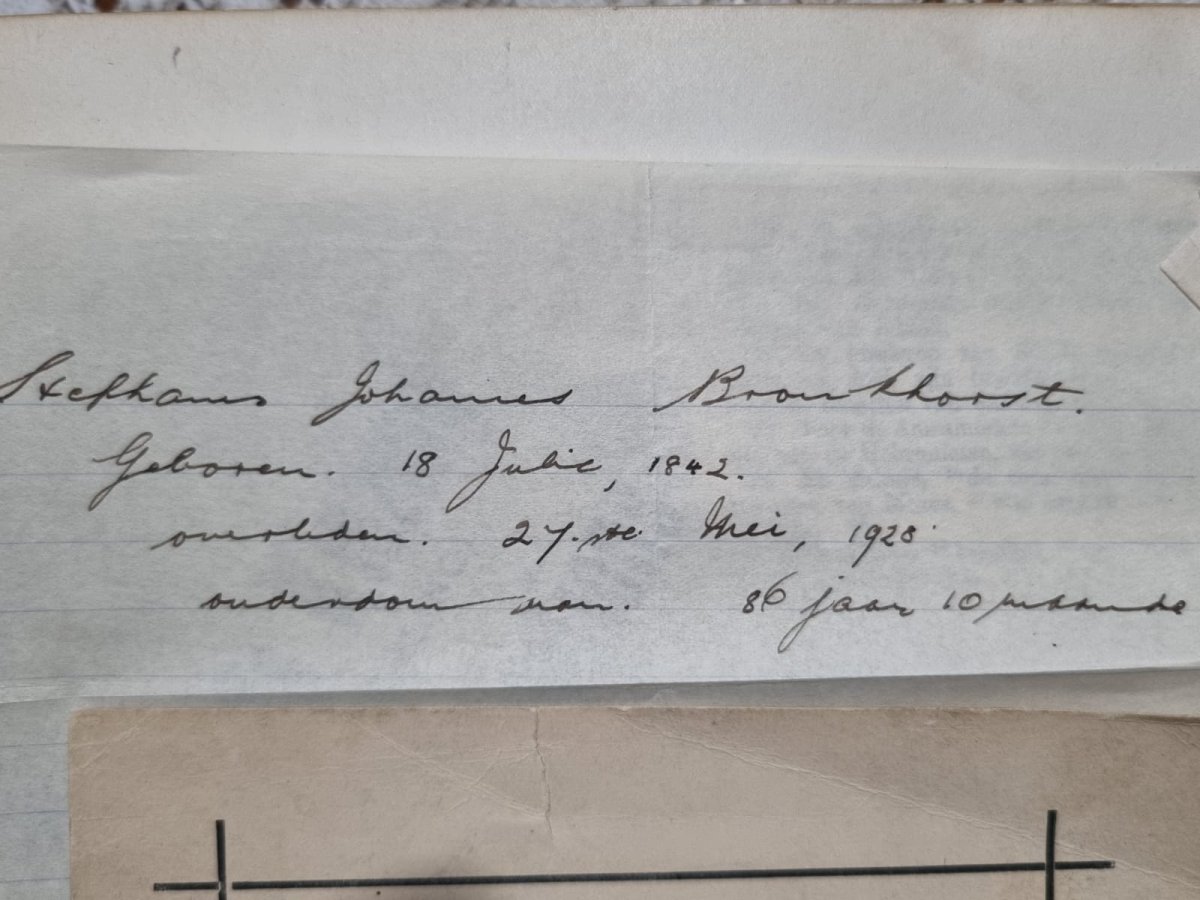 Stephanus Johannes Bronkhorst.
Geboren. 18 Julie, 1842.
overleden. 27.ste Mei, 1928
ouderdom van. 86 jaar 10 maande